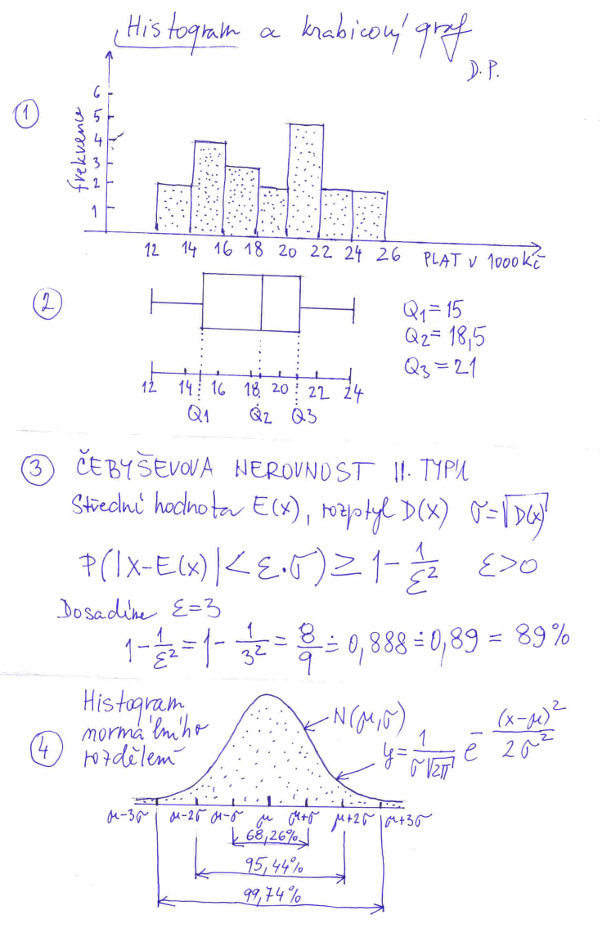 Histogram a krabicový graf
D.P.
1
frekvence
6
5
4
3
2
1
12 14 16 18 20 22 24 26 PLAT V 1000 Kč
2
Q1=15
Q2=18,5
Q3=21
12 14 16 18 20 22 24
Q1 Q2 Q3
3 ČEBYŠEVOVA NEROVNOST II. TYPU
Střední hodnota E(X), rozptyl D(X) σ=√D(X)
P(|X-E(X)|<ε·σ)≥1-1/ε² ε>0
Dosadíme ε=3
1-1/ε²=1-1/3²=8/9≐0,888≐0,89=89%
4
Histogram
normálního
rozdělení
N(μ,σ)
y=1/(σ√2π) e^-(x-μ)²/2σ²
μ-3σ μ-2σ μ-σ μ μ+σ μ+2σ μ+3σ
68,26%
95,44%
99,74%